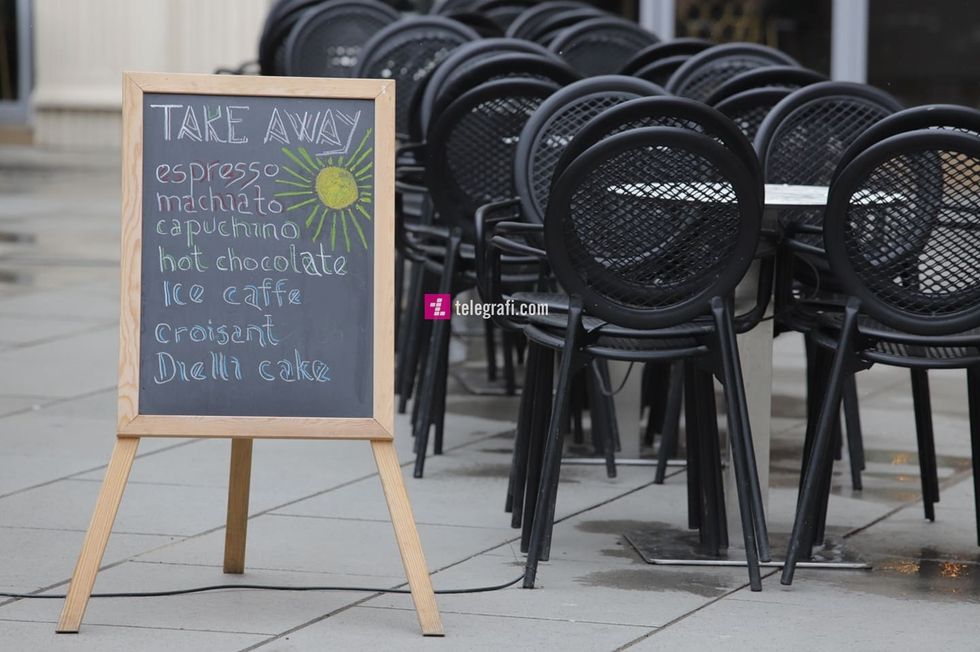 TAKE AWAY
espresso
machiato
capuchino
hot chocolate
Ice caffe
croisant
Drella cake
telegrafi.com